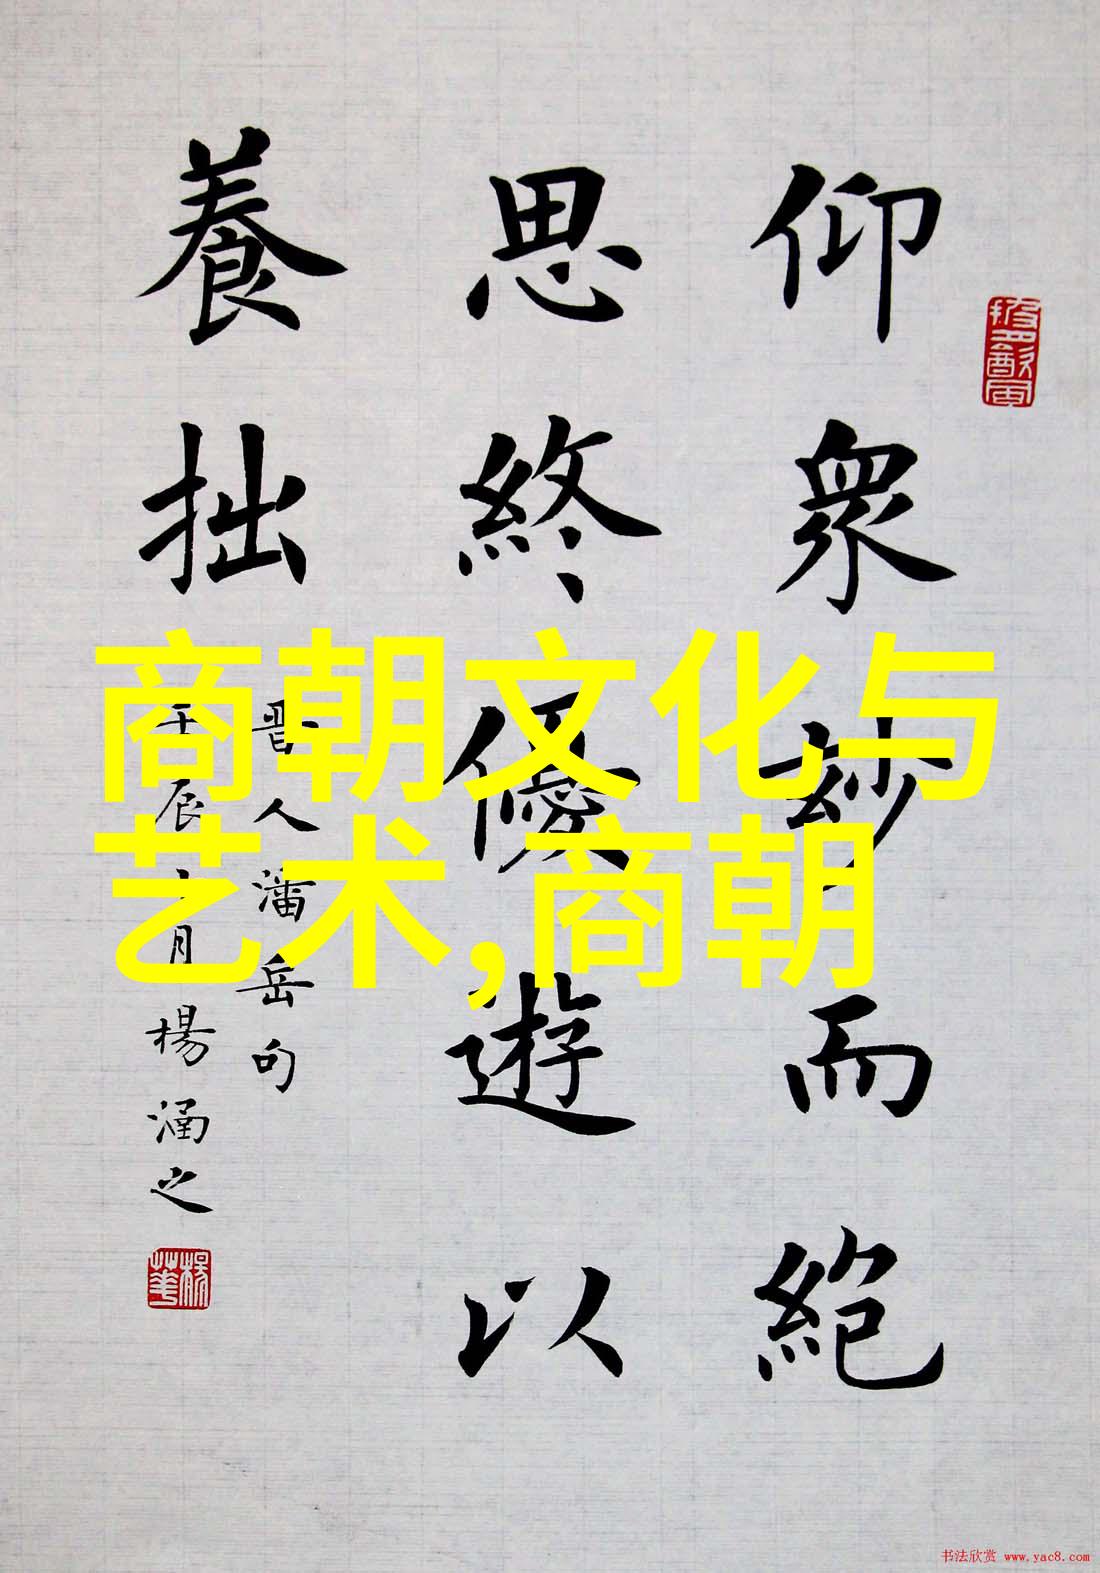 仰眾妙而絕
思終優遊以
養拙
晋人潘岳句
壬辰 月楊涵之
商朝文化与
艺术,商朝
书法欣赏 www.yac8.com